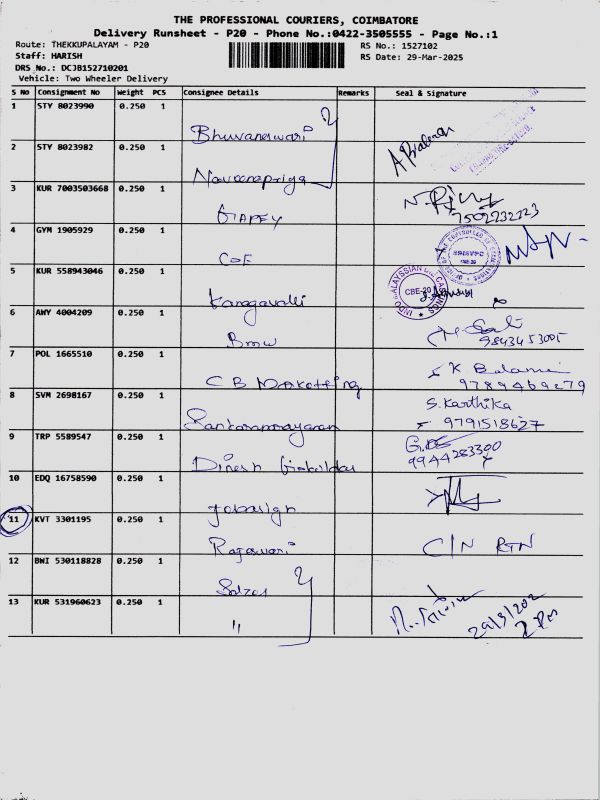 THE PROFESSIONAL COURIERS, COIMBATORE
Delivery Runsheet - P20 - Phone No.:0422-3505555 - Page No.:1
Route: THEKKUPALAYAM - P20 RS No.: 1527102
Staff: HARISH RS Date: 29-Mar-2025
DRS No.: DCJB152710201
Vehicle: Two Wheeler Delivery
S No Consignment No Weight PCS Consignee Details Remarks Seal & Signature
1 STY 8023990 0.250 1 Bhuvaneswari
2 STY 8023982 0.250 1 Naveenapriya
3 KUR 7003503668 0.250 1
7502232223
4 GYM 1905929 0.250 1 COE
5 KUR 558943046 0.250 1 Karagavalli CBE-20
6 AWY 4004209 0.250 1
9843453005
7 POL 1665510 0.250 1 CB Maketting K Balami
9789469279
8 SVM 2698167 0.250 1 Sankaranarayanan S.Karthika
9791518627
9 TRP 5589547 0.250 1 Dinesh
9944283300
10 EDQ 16758590 0.250 1
11 KVT 3301195 0.250 1 Rajeswari C/N RTN
12 BWI 530118828 0.250 1
13 KUR 531960623 0.250 1 "